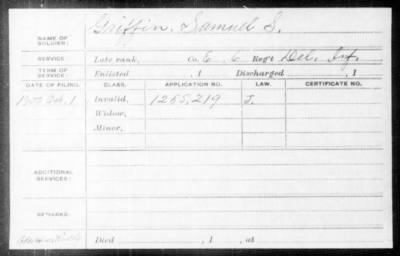 NAME OF SOLDIER: Griffin, Samuel S.
SERVICE: Late rank, Co. E, 6 Reg't Del. Inf.
TERM OF SERVICE: Enlisted , 1 Discharged , 1
DATE OF FILING. CLASS. APPLICATION NO. LAW. CERTIFICATE NO.
1 Invalid, 1265,219 J.
Widow,
Minor,
ADDITIONAL SERVICES:
REMARKS:
Died , 1 , at